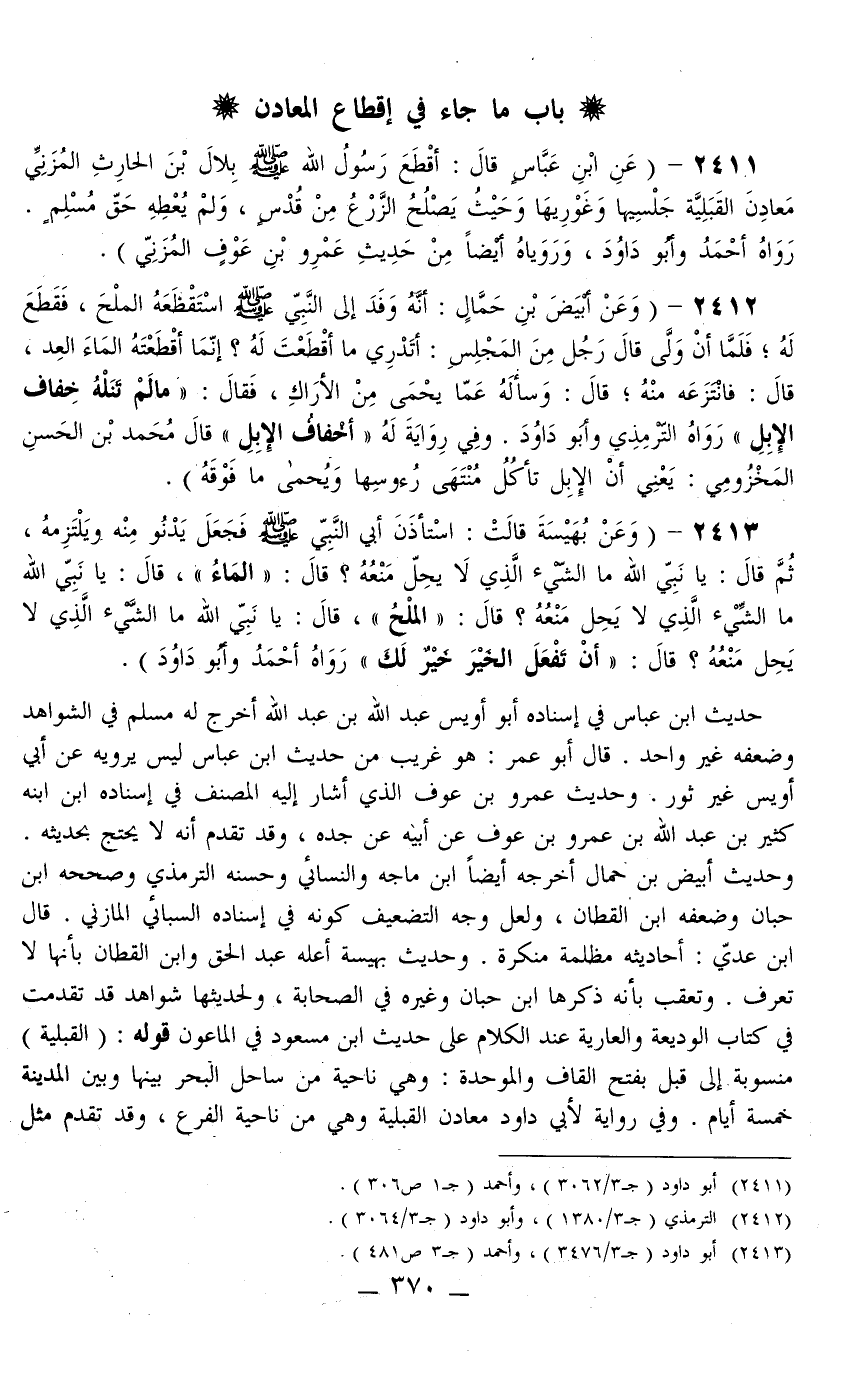 ✹ باب ما جاء في إقطاع المعادن ✹
٢٤١١ – ( عَنِ ابْنِ عَبَّاسٍ قالَ : أقْطَعَ رَسُولُ الله ﷺ بِلالَ بْنَ الحارِثِ المُزَنِيَّ
مَعادِنَ القَبَلِيَّة جَلْسِيها وَغَوْرِيها وَحَيْثُ يَصْلُحُ الزَّرْعُ مِنْ قُدْسٍ ، وَلمْ يُعْطِهِ حَقّ مُسْلِمٍ .
رَوَاهُ أحْمَدُ وأبُو دَاوُدَ ، وَرَوَياهُ أيْضاً مِنْ حَدِيثِ عَمْرِو بْنِ عَوْفٍ المُزَنِيّ ) .
٢٤١٢ – ( وَعَنْ أبْيَضَ بْنِ حَمَّالٍ : أنَّهُ وَفَدَ إلى النَّبِيّ ﷺ اسْتَقْطَعَهُ الملحَ ، فَقَطَعَ
لَهُ ؛ فَلَمَّا أنْ وَلَّى قالَ رَجُل مِنَ المَجْلِسِ : أتَدْرِي ما أقْطَعْتَ لَهُ ؟ إنّمَا أقْطَعْتَهُ المَاءَ العِد ،
قالَ : فانْتَزَعَه منْهُ ؛ قالَ : وَسألَهُ عَمّا يحْمَى مِنْ الأرَاكِ ، فَقالَ : « مالَمْ تَنَلْهُ خِفاف
الإبِلِ » رَوَاهُ التّرْمِذِي وأبُو دَاوُدَ . وفِي رِوَايَة لَهُ « أخْفافُ الإبِلِ » قالَ مُحَمد بْن الحَسنِ
المَخْزُومِي : يَعْنِي أنْ الإبِل تأكُلُ مُنْتَهَى رُءوسِها وَيُحمىٰ ما فَوْقَهُ ) .
٢٤١٣ – ( وَعَنْ بُهَيْسَةَ قالَتْ : اسْتأذَنَ أبي النَّبِيّ ﷺ فَجَعَلَ يَدْنُو مِنْه ويَلْتَزِمهُ ،
ثُمَّ قالَ : يا نَبِيّ الله ما الشَّيْء الَّذِي لَا يحِلّ مَنْعُهُ ؟ قالَ : « المَاءُ » ، قالَ : يا نَبِيّ الله
ما الشَّيْء الَّذِي لا يَحِل مَنْعُهُ ؟ قالَ : « الملْحُ » ، قالَ : يا نَبِيّ الله ما الشَّيْء الَّذِي لا
يَحِل مَنْعُهُ ؟ قالَ : « أنْ تَفْعَلَ الخَيْرَ خَيْرٌ لَكَ » رَوَاهُ أحْمَدُ وأبُو دَاوُدَ ) .
حديث ابن عباس في إسناده أبو أويس عبد الله بن عبد الله أخرج له مسلم في الشواهد
وضعفه غير واحد . قال أبو عمر : هو غريب من حديث ابن عباس ليس يرويه عن أبي
أويس غير ثور . وحديث عمرو بن عوف الذي أشار إليه المصنف في إسناده ابن ابنه
كثير بن عبد الله بن عمرو بن عوف عن أبيه عن جده ، وقد تقدم أنه لا يحتج بحديثه .
وحديث أبيض بن حمال أخرجه أيضاً ابن ماجه والنسائي وحسنه الترمذي وصححه ابن
حبان وضعفه ابن القطان ، ولعل وجه التضعيف كونه في إسناده السبائي المازني . قال
ابن عديّ : أحاديثه مظلمة منكرة . وحديث بهيسة أعله عبد الحق وابن القطان بأنها لا
تعرف . وتعقب بأنه ذكرها ابن حبان وغيره في الصحابة ، ولحديثها شواهد قد تقدمت
في كتاب الوديعة والعارية عند الكلام على حديث ابن مسعود في الماعون قوله : ( القبلية )
منسوبة إلى قبل بفتح القاف والموحدة : وهي ناحية من ساحل البحر بينها وبين المدينة
خمسة أيام . وفي رواية لأبي داود معادن القبلية وهي من ناحية الفرع ، وقد تقدم مثل
(٢٤١١) أبو داود ( جـ٣/٣٠٦٢ ) ، وأحمد ( جـ١ ص٣٠٦ ) .
(٢٤١٢) الترمذي ( جـ٣/١٣٨٠ ) ، وأبو داود ( جـ٣/٣٠٦٤ ) .
(٢٤١٣) أبو داود ( جـ٣/٣٤٧٦ ) ، وأحمد ( جـ٣ ص٤٨١ ) .
– ٣٧٠ –